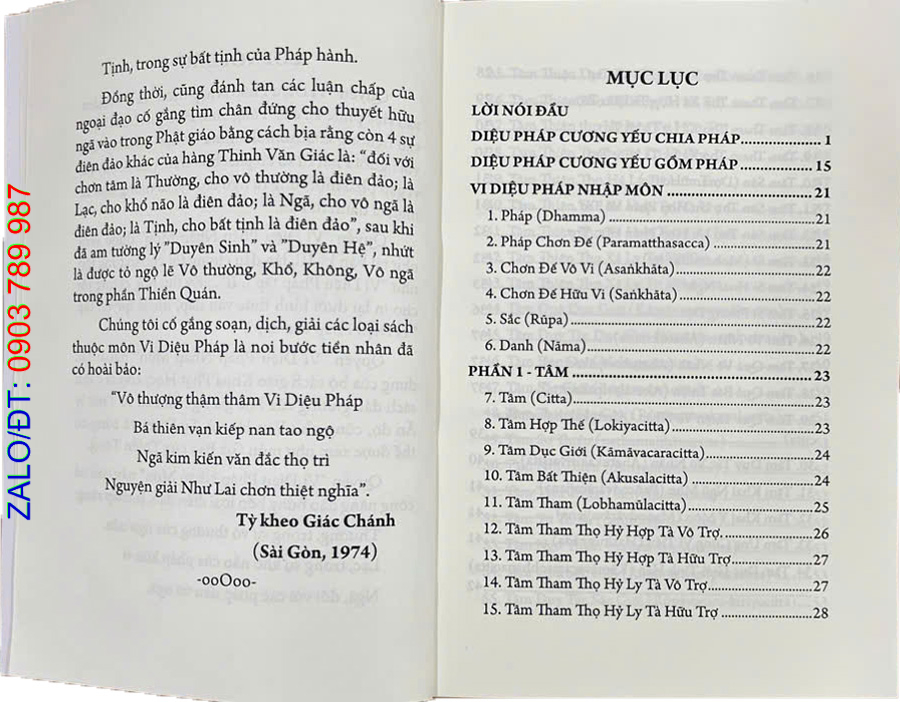 ZALO/ĐT: 0903 789 987
Tịnh, trong sự bất tịnh của Pháp hành.
Đồng thời, cũng đánh tan các luận chấp của
ngoại đạo cố gắng tìm chân đứng cho thuyết hữu
ngã vào trong Phật giáo bằng cách bịa rằng còn 4 sự
điên đảo khác của hàng Thinh Văn Giác là: “đối với
chơn tâm là Thường, cho vô thường là điên đảo; là
Lạc, cho khổ não là điên đảo; là Ngã, cho vô ngã là
điên đảo; là Tịnh, cho bất tịnh là điên đảo”, sau khi
đã am tường lý "Duyên Sinh” và ”Duyên Hệ”, nhứt
là được tỏ ngộ lẽ Vô thường, Khổ, Không, Vô ngã
trong phần Thiền Quán.
Chúng tôi cố gắng soạn, dịch, giải các loại sách
thuộc môn Vi Diệu Pháp là noi bước tiền nhân đã
có hoài bảo:
“Vô thượng thậm thâm Vi Diệu Pháp
Bá thiên vạn kiếp nan tao ngộ
Ngã kim kiến văn đắc thọ trì
Nguyện giải Như Lai chơn thiệt nghĩa”.
Tỳ kheo Giác Chánh
(Sài Gòn, 1974)
-ooOoo-
MỤC LỤC
LỜI NÓI ĐẦU
DIỆU PHÁP CƯƠNG YẾU CHIA PHÁP.................... 1
DIỆU PHÁP CƯƠNG YẾU GỒM PHÁP .................... 15
VI DIỆU PHÁP NHẬP MÔN .................................... 21
1. Pháp (Dhamma) .................................................... 21
2. Pháp Chơn Đế (Paramatthasacca) ........................ 21
3. Chơn Đế Vô Vi (Asaṅkhāta) .................................. 22
4. Chơn Đế Hữu Vi (Saṅkhāta) .................................. 22
5. Sắc (Rūpa) ............................................................ 22
6. Danh (Nāma) ......................................................... 22
PHẦN I - TÂM ........................................................ 23
7. Tâm (Citta) ............................................................ 23
8. Tâm Hợp Thế (Lokiyacitta) ................................... 23
9. Tâm Dục Giới (Kāmāvacaracitta) .......................... 24
10. Tâm Bất Thiện (Akusalacitta) .............................. 24
11. Tâm Tham (Lobhamūlacitta) ............................... 25
12. Tâm Tham Thọ Hỷ Hợp Tà Vô Trợ. ..................... 26
13. Tâm Tham Thọ Hỷ Hợp Tà Hữu Trợ ................... 27
14. Tâm Tham Thọ Hỷ Ly Tà Vô Trợ ......................... 27
15. Tâm Tham Thọ Hỷ Ly Tà Hữu Trợ ...................... 28